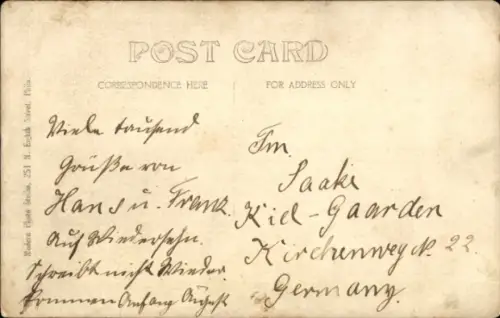 POST CARD
CORRESPONDENCE HERE
FOR ADDRESS ONLY
Viele tausend
Grüße von
Hans u. Franz.
Auf Wiedersehn.
Schreibt nicht Wieder
kommen Anfang August
Fm.
Saake
Kiel-Gaarden
Kirchenweg N. 22.
Germany.
Modern Photo Studio, 251 N. Eighth Street, Phila.